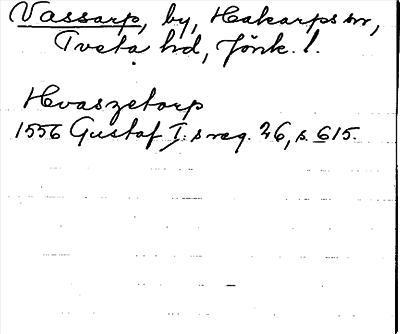 Vassarp, by, Hakarps sn,
Tveta hd, Jönk. l.
Hvaszetorp
1556 Gustaf I:s reg. 26, s. 615.